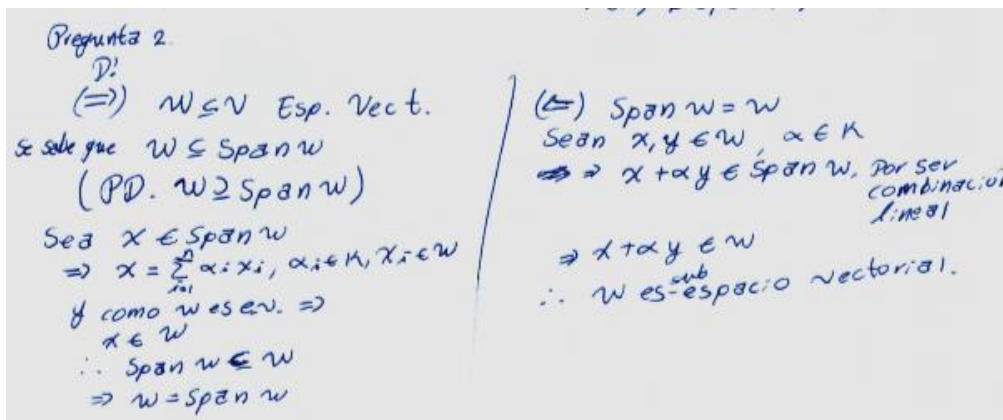 Pregunta 2.
D!
(⇒) W ⊆ V Esp. Vect.
Se sabe que W ⊆ Span W
(PD. W ⊇ Span W)
Sea x ∈ Span W
⇒ x = ∑_{i=1}^{n} αi xi, αi ∈ K, xi ∈ W
y como W es e.v. ⇒
x ∈ W
∴ Span W ⊆ W
⇒ W = Span W
(⇐) Span W = W
Sean x, y ∈ W, α ∈ K
⇒ x + αy ∈ Span W, Por ser
combinación
lineal
⇒ x + αy ∈ W
∴ W es sub-espacio vectorial.